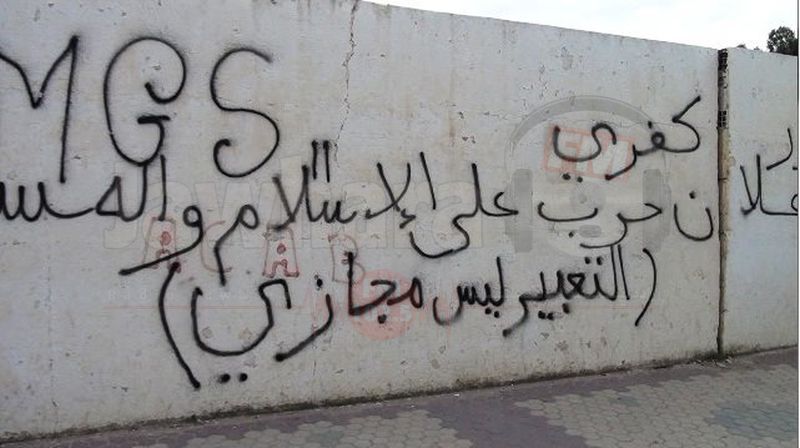 MGS
كفري
علان حرب على الإسلام والمس
(التعبير ليس مجازي)
ACAB
Jawhara
FM